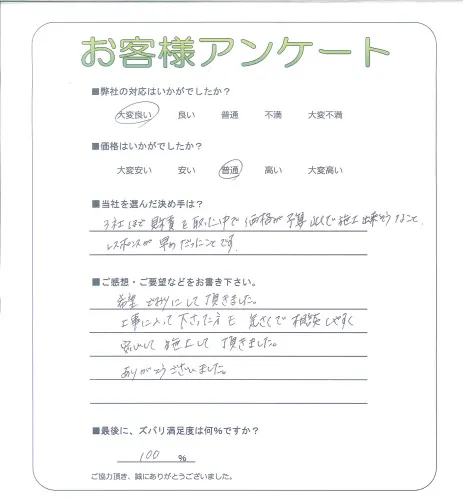 お客様アンケート
■弊社の対応はいかがでしたか？
大変良い 良い 普通 不満 大変不満
■価格はいかがでしたか？
大変安い 安い 普通 高い 大変高い
■当社を選んだ決め手は？
3社ほど見積を取った中で価格が予算以内で施工出来そうなこと
レスポンスが早めだったことです。
■ご感想・ご要望などをお書き下さい。
希望どおりにして頂きました。
工事に入って下さった方も気さくで相談しやすく
安心して施工して頂きました。
ありがとうございました。
■最後に、ズバリ満足度は何%ですか？
100 %
ご協力頂き、誠にありがとうございました。